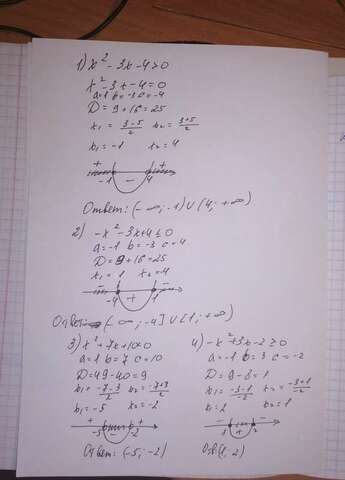 1) x² - 3x - 4 > 0
x² - 3x - 4 = 0
a=1 b=-3 c=-4
D = 9 + 16 = 25
x₁ = (3-5)/2 x₂ = (3+5)/2
x₁ = -1 x₂ = 4
+ - +
-1 4
Ответ: (-∞; -1) ∪ (4; +∞)
2) -x² - 3x + 4 ≤ 0
a=-1 b=-3 c=4
D = 9 + 16 = 25
x₁ = 1 x₂ = -4
- + -
-4 1
Ответ: (-∞; -4] ∪ [1; +∞)
3) x² + 7x + 10 < 0
a=1 b=7 c=10
D = 49 - 40 = 9
x₁ = (-7-3)/2 x₂ = (-7+3)/2
x₁ = -5 x₂ = -2
+ - +
-5 -2
Ответ: (-5; -2)
4) -x² + 3x - 2 ≥ 0
a=-1 b=3 c=-2
D = 9 - 8 = 1
x₁ = (-3-1)/-2 x₂ = (-3+1)/-2
x₁ = 2 x₂ = 1
- + -
2